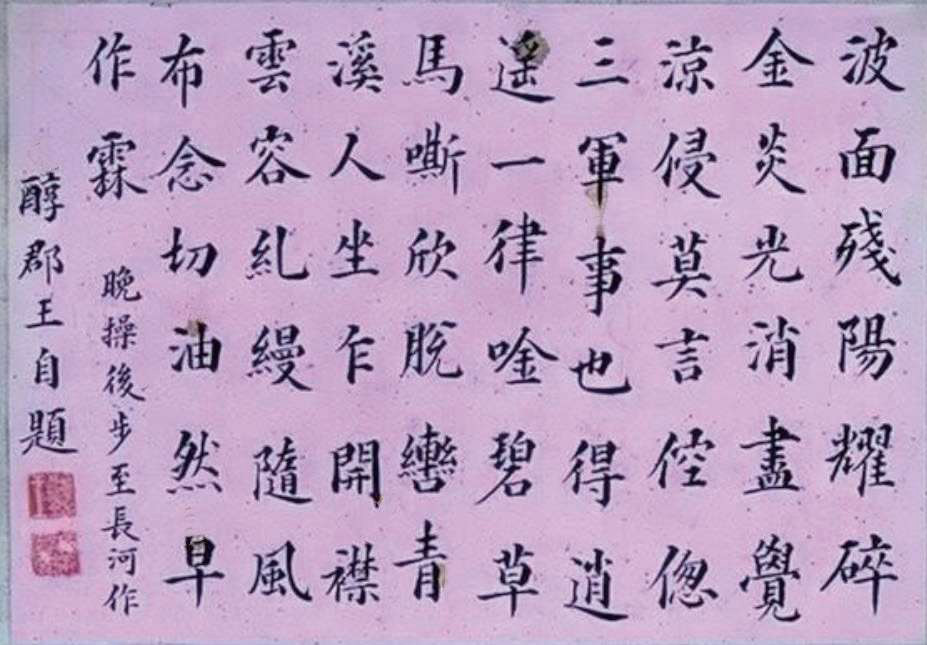 波面殘陽耀碎
金炎光消盡覺
涼侵莫言倥傯
三軍事也得逍
遙一律唫碧草
馬嘶欣脫轡青
溪人坐乍開襟
雲容乣縵隨風
布念切油然早
作霖
晚操後步至長河作
醇郡王自題